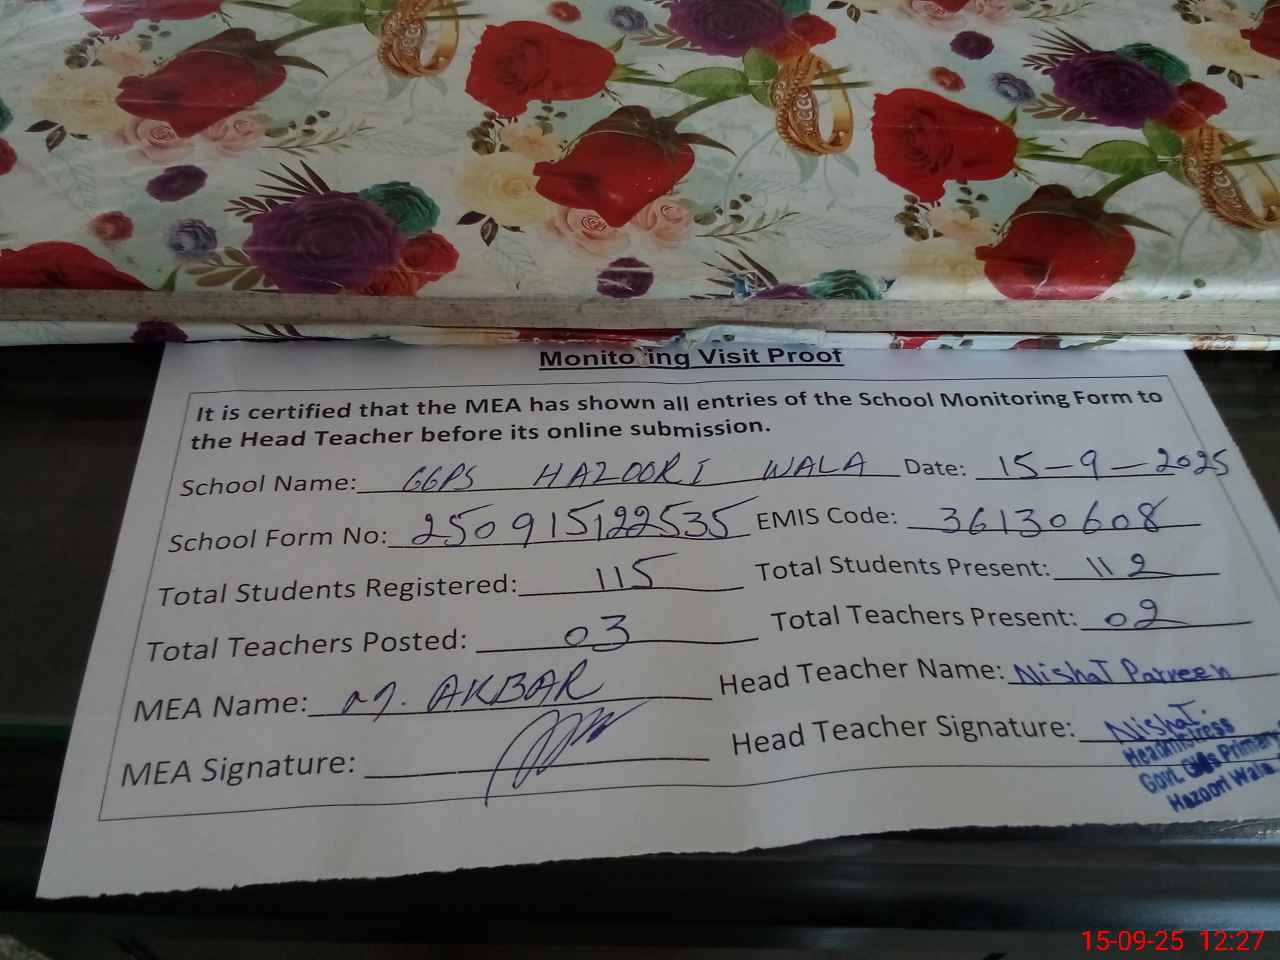 Monitoring Visit Proof
It is certified that the MEA has shown all entries of the School Monitoring Form to
the Head Teacher before its online submission.
School Name: GGPS HAZOORI WALA Date: 15-9-2025
School Form No: 250915122535 EMIS Code: 36130608
Total Students Registered: 115 Total Students Present: 112
Total Teachers Posted: 03 Total Teachers Present: 02
MEA Name: M. AKBAR Head Teacher Name: Nishat Parveen
MEA Signature: Head Teacher Signature: Nishat.
Headmistress
Govt. Girls Primary
Hazoori Wala
15-09-25 12:27